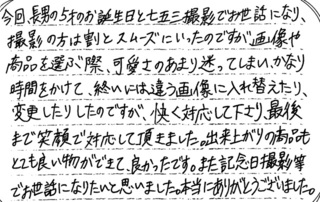 今回、長男の5才のお誕生日と七五三撮影でお世話になり、
撮影の方は割とスムーズにいったのですが画像や
商品を選ぶ際、可愛さのあまり迷ってしまい、かなり
時間をかけて、終いには違う画像に入れ替えたり、
変更したりしたのですが、快く対応して下さり、最後
まで笑顔で対応して頂きました。出来上がりの商品も
とても良い物ができて、良かったです。また記念日撮影等
でお世話になりたいと思いました。本当にありがとうございました。